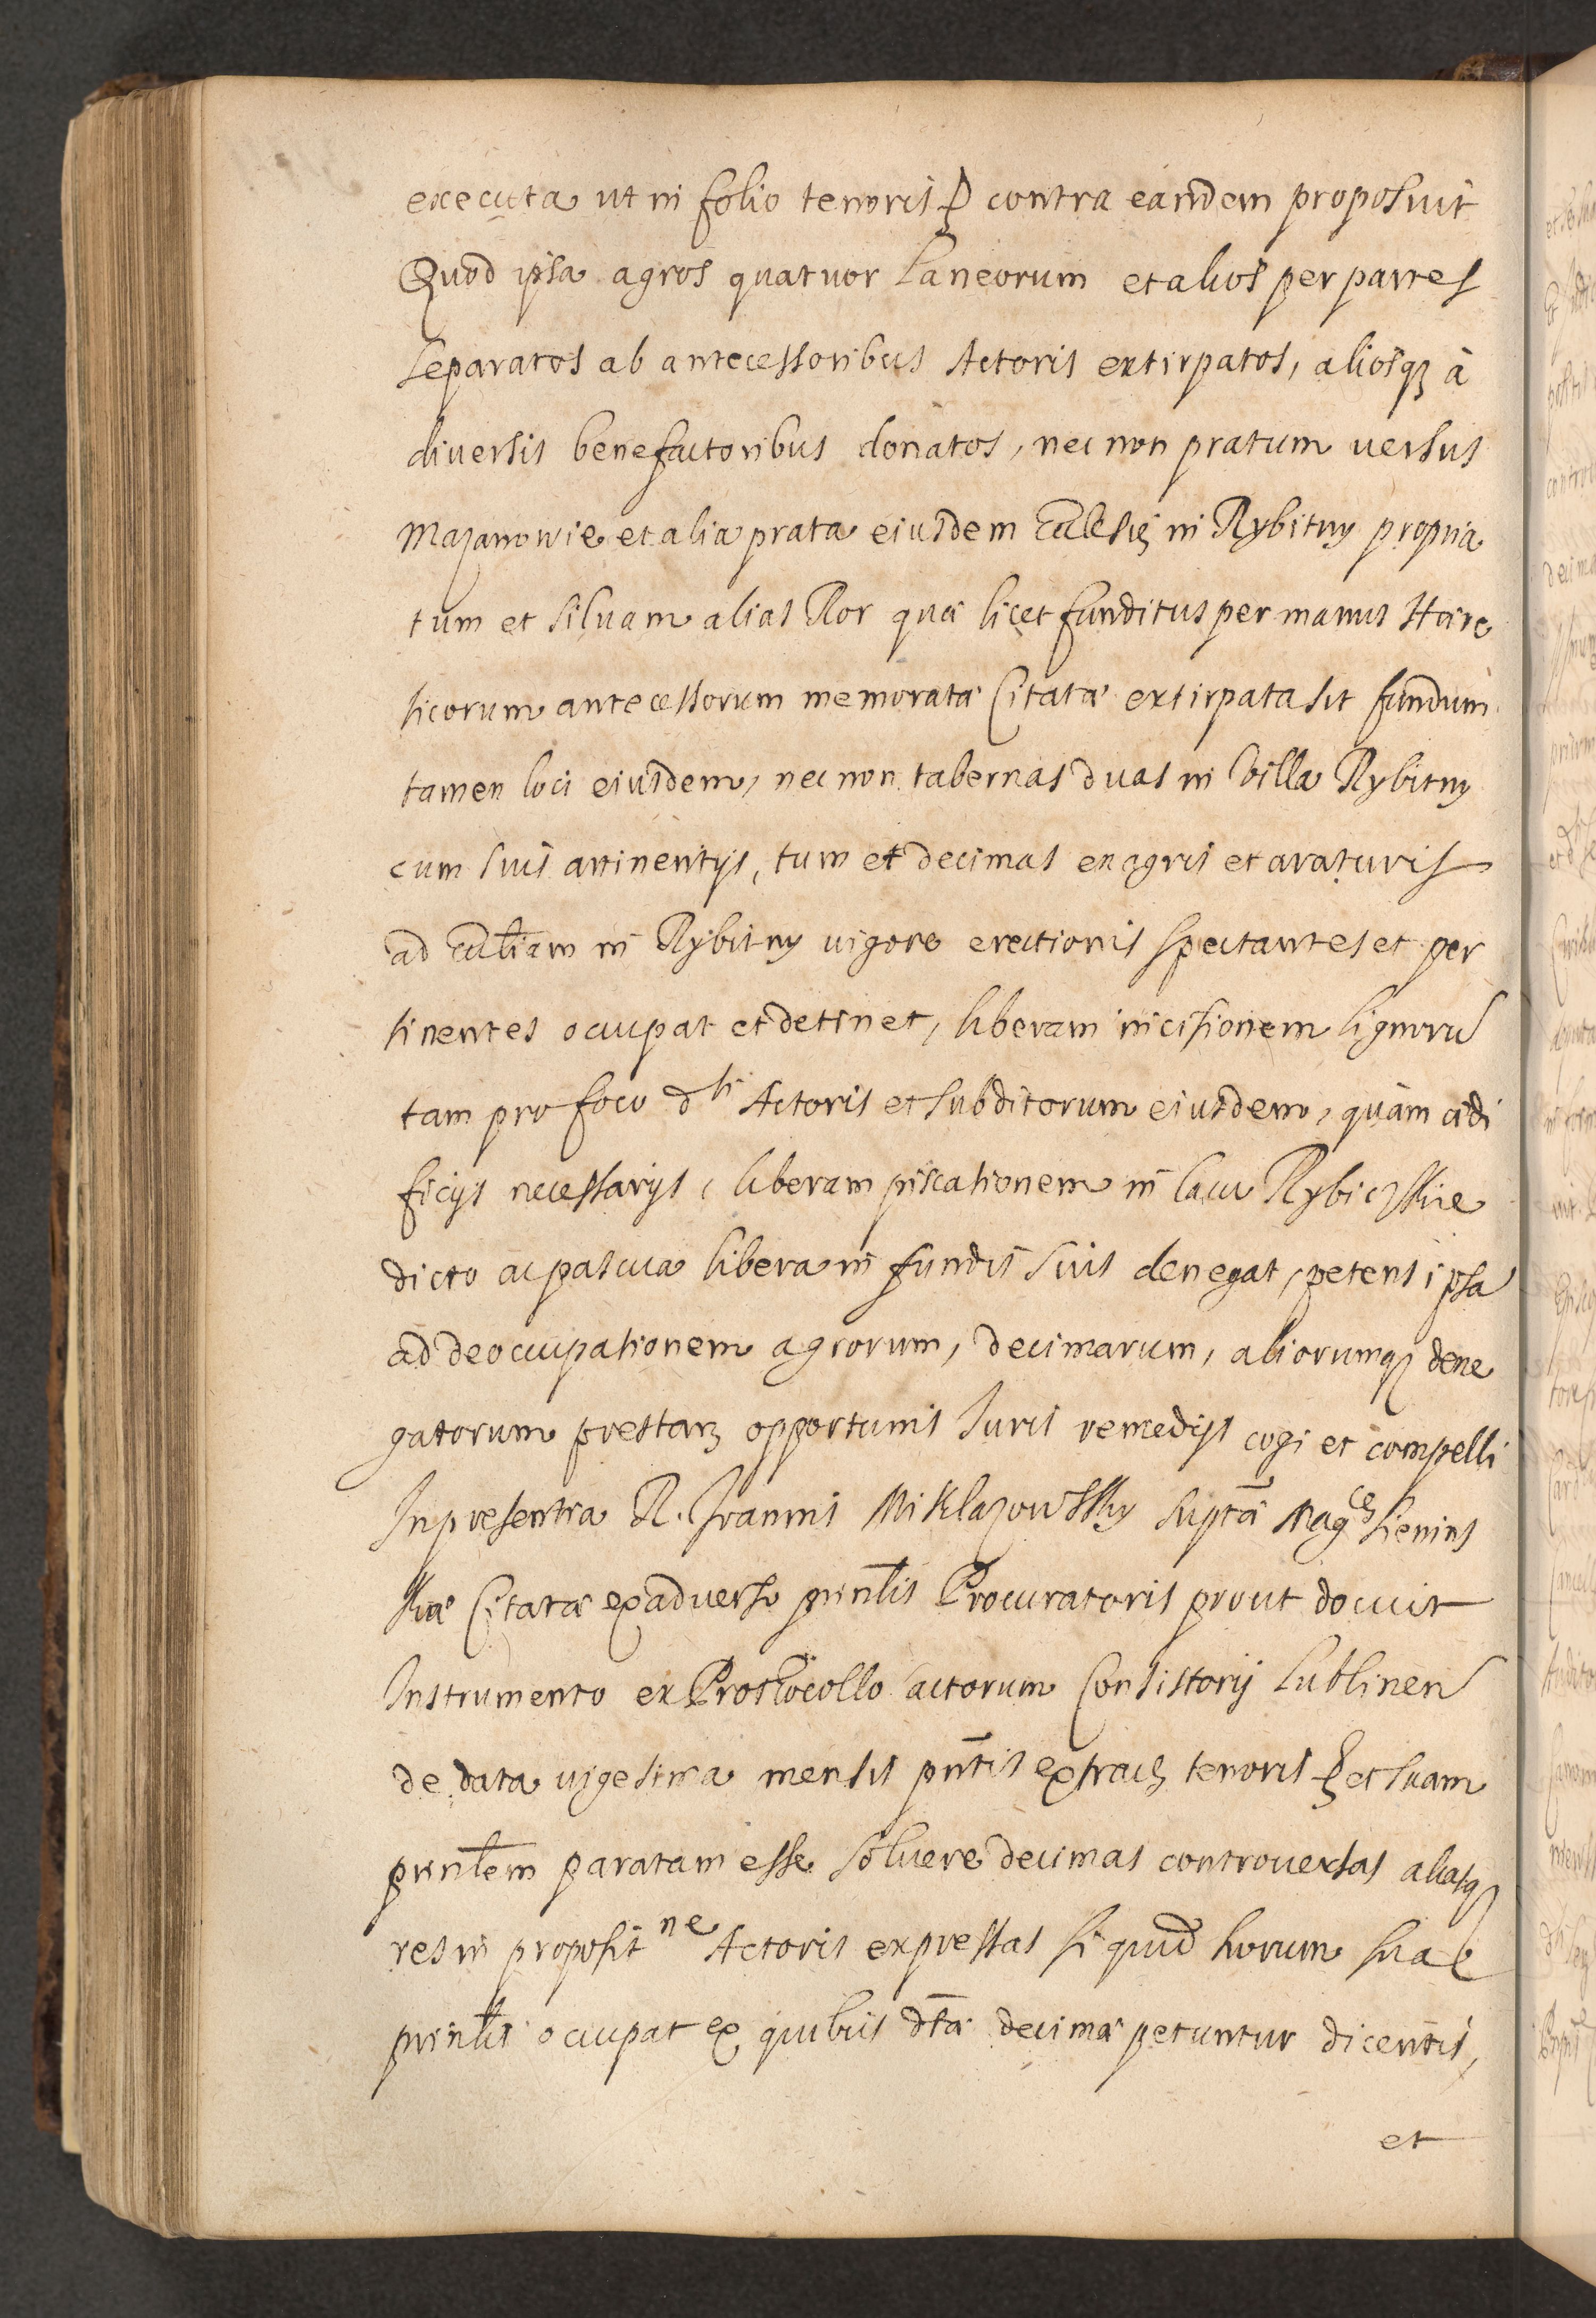 executa ut in folio tenoris contra eandem proposuit
Quod ipsa agros quatuor Laneorum et alios per partes
separatos ab antecessoribus Actoris extirpatos, aliosq3 à
diuersis benefactoribus donatos, nec non pratum uersus
Mazanowie et alia prata eiusdem Ecclesię in Rybitwy propria
tum et siluam alias Bor quæ licet funditus per manus Hære
ticorum antecessorum memoratæ Citatæ extirpata sit fundum
tamen loci eiusdem, nec non tabernas duas in Villa Rybitwy
cum suis attinentijs, tum et decimas ex agris et araturis
ad Eccl̃iam in Rybitwy uigore erectionis spectantes et per
tinentes occupat et detinet, liberam incisionem lignorũ
tam pro foco dti Actoris et subditorum eiusdem, quàm ædi
ficijs necessarijs, liberam piscationem in lacu Rybiczskie
dicto ac pascua libera in fundis suis denegat, petens ipsã
ad deoccupationem agrorum, decimarum, aliorumq3 dene
gatorum prestan3 opportunis Iuris remedijs cogi et compelli
In presentia R. Ioannis Miklazowsky suptã Magcę Sienins
kiæ Citatæ ex aduerso prinl̃is Procuratoris prout docuit
Instrumento ex Prothocollo actorum Consistorij Lublinen
de data uigesima mensis pñtis extrac3 tenoris et suam
prinl̃em paratam esse soluere decimas controuersas aliasq3
res in propositne Actoris expressas si quid horum sua
prinl̃is occupat ex quibus dtæ decimæ petuntur dicentis,
et